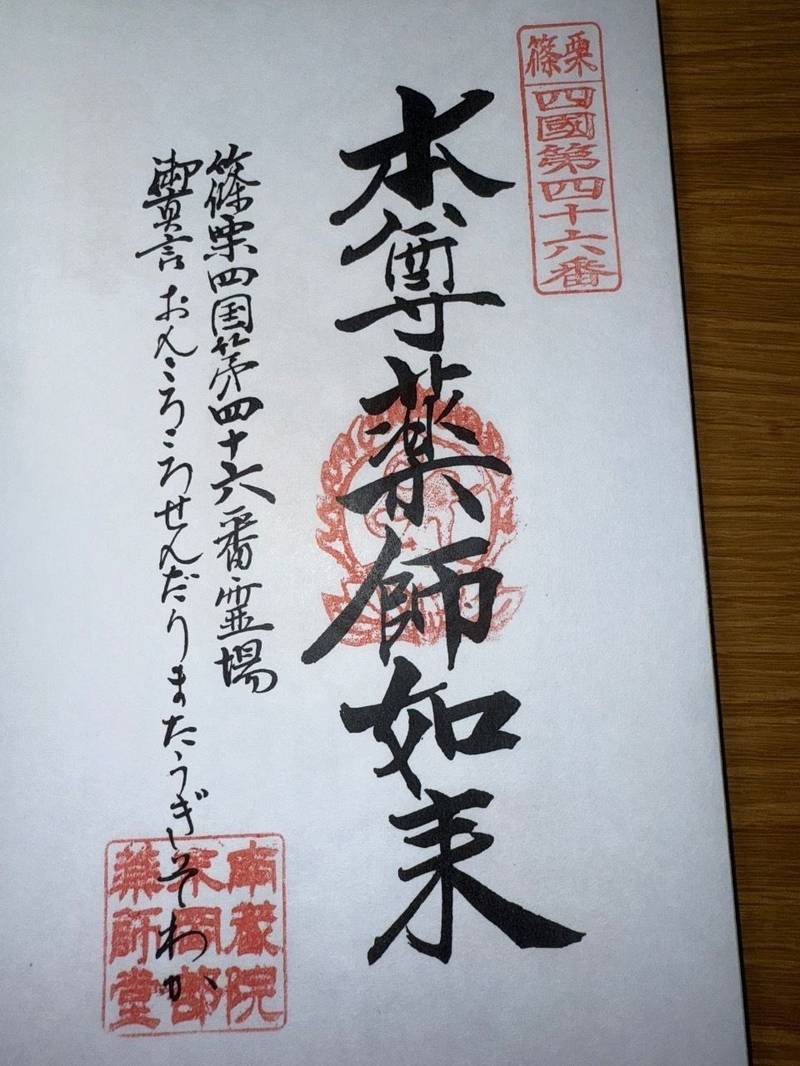 篠栗
四國第四十六番
本尊薬師如来
篠栗四国第四十六番霊場
御真言 おんころころせんだりまたうぎそわか
南蔵院
末岡部
薬師堂